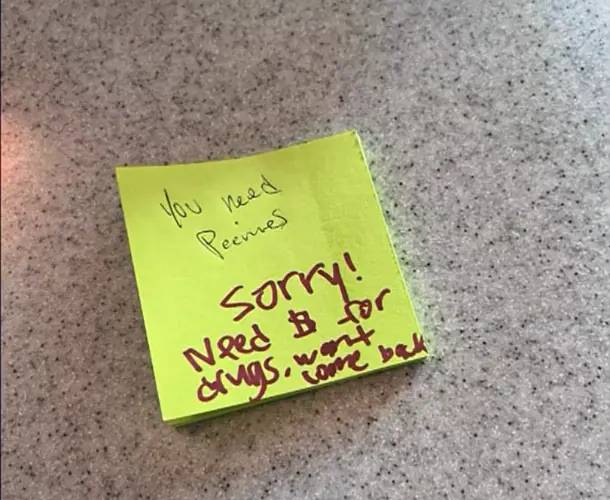 You need
Pecimes
Sorry!
Need $ for
drugs. wont
come back